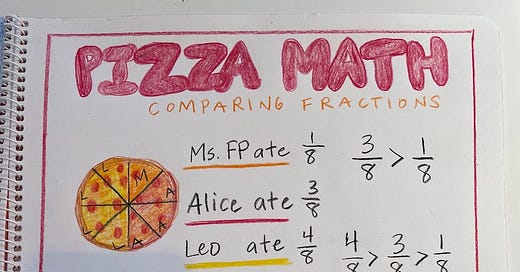 PIZZA MATH
COMPARING FRACTIONS
Ms. FP ate 1/8 3/8 > 1/8
Alice ate 3/8
Leo ate 4/8 4/8 > 3/8 > 1/8
L M
L A
L A
L A